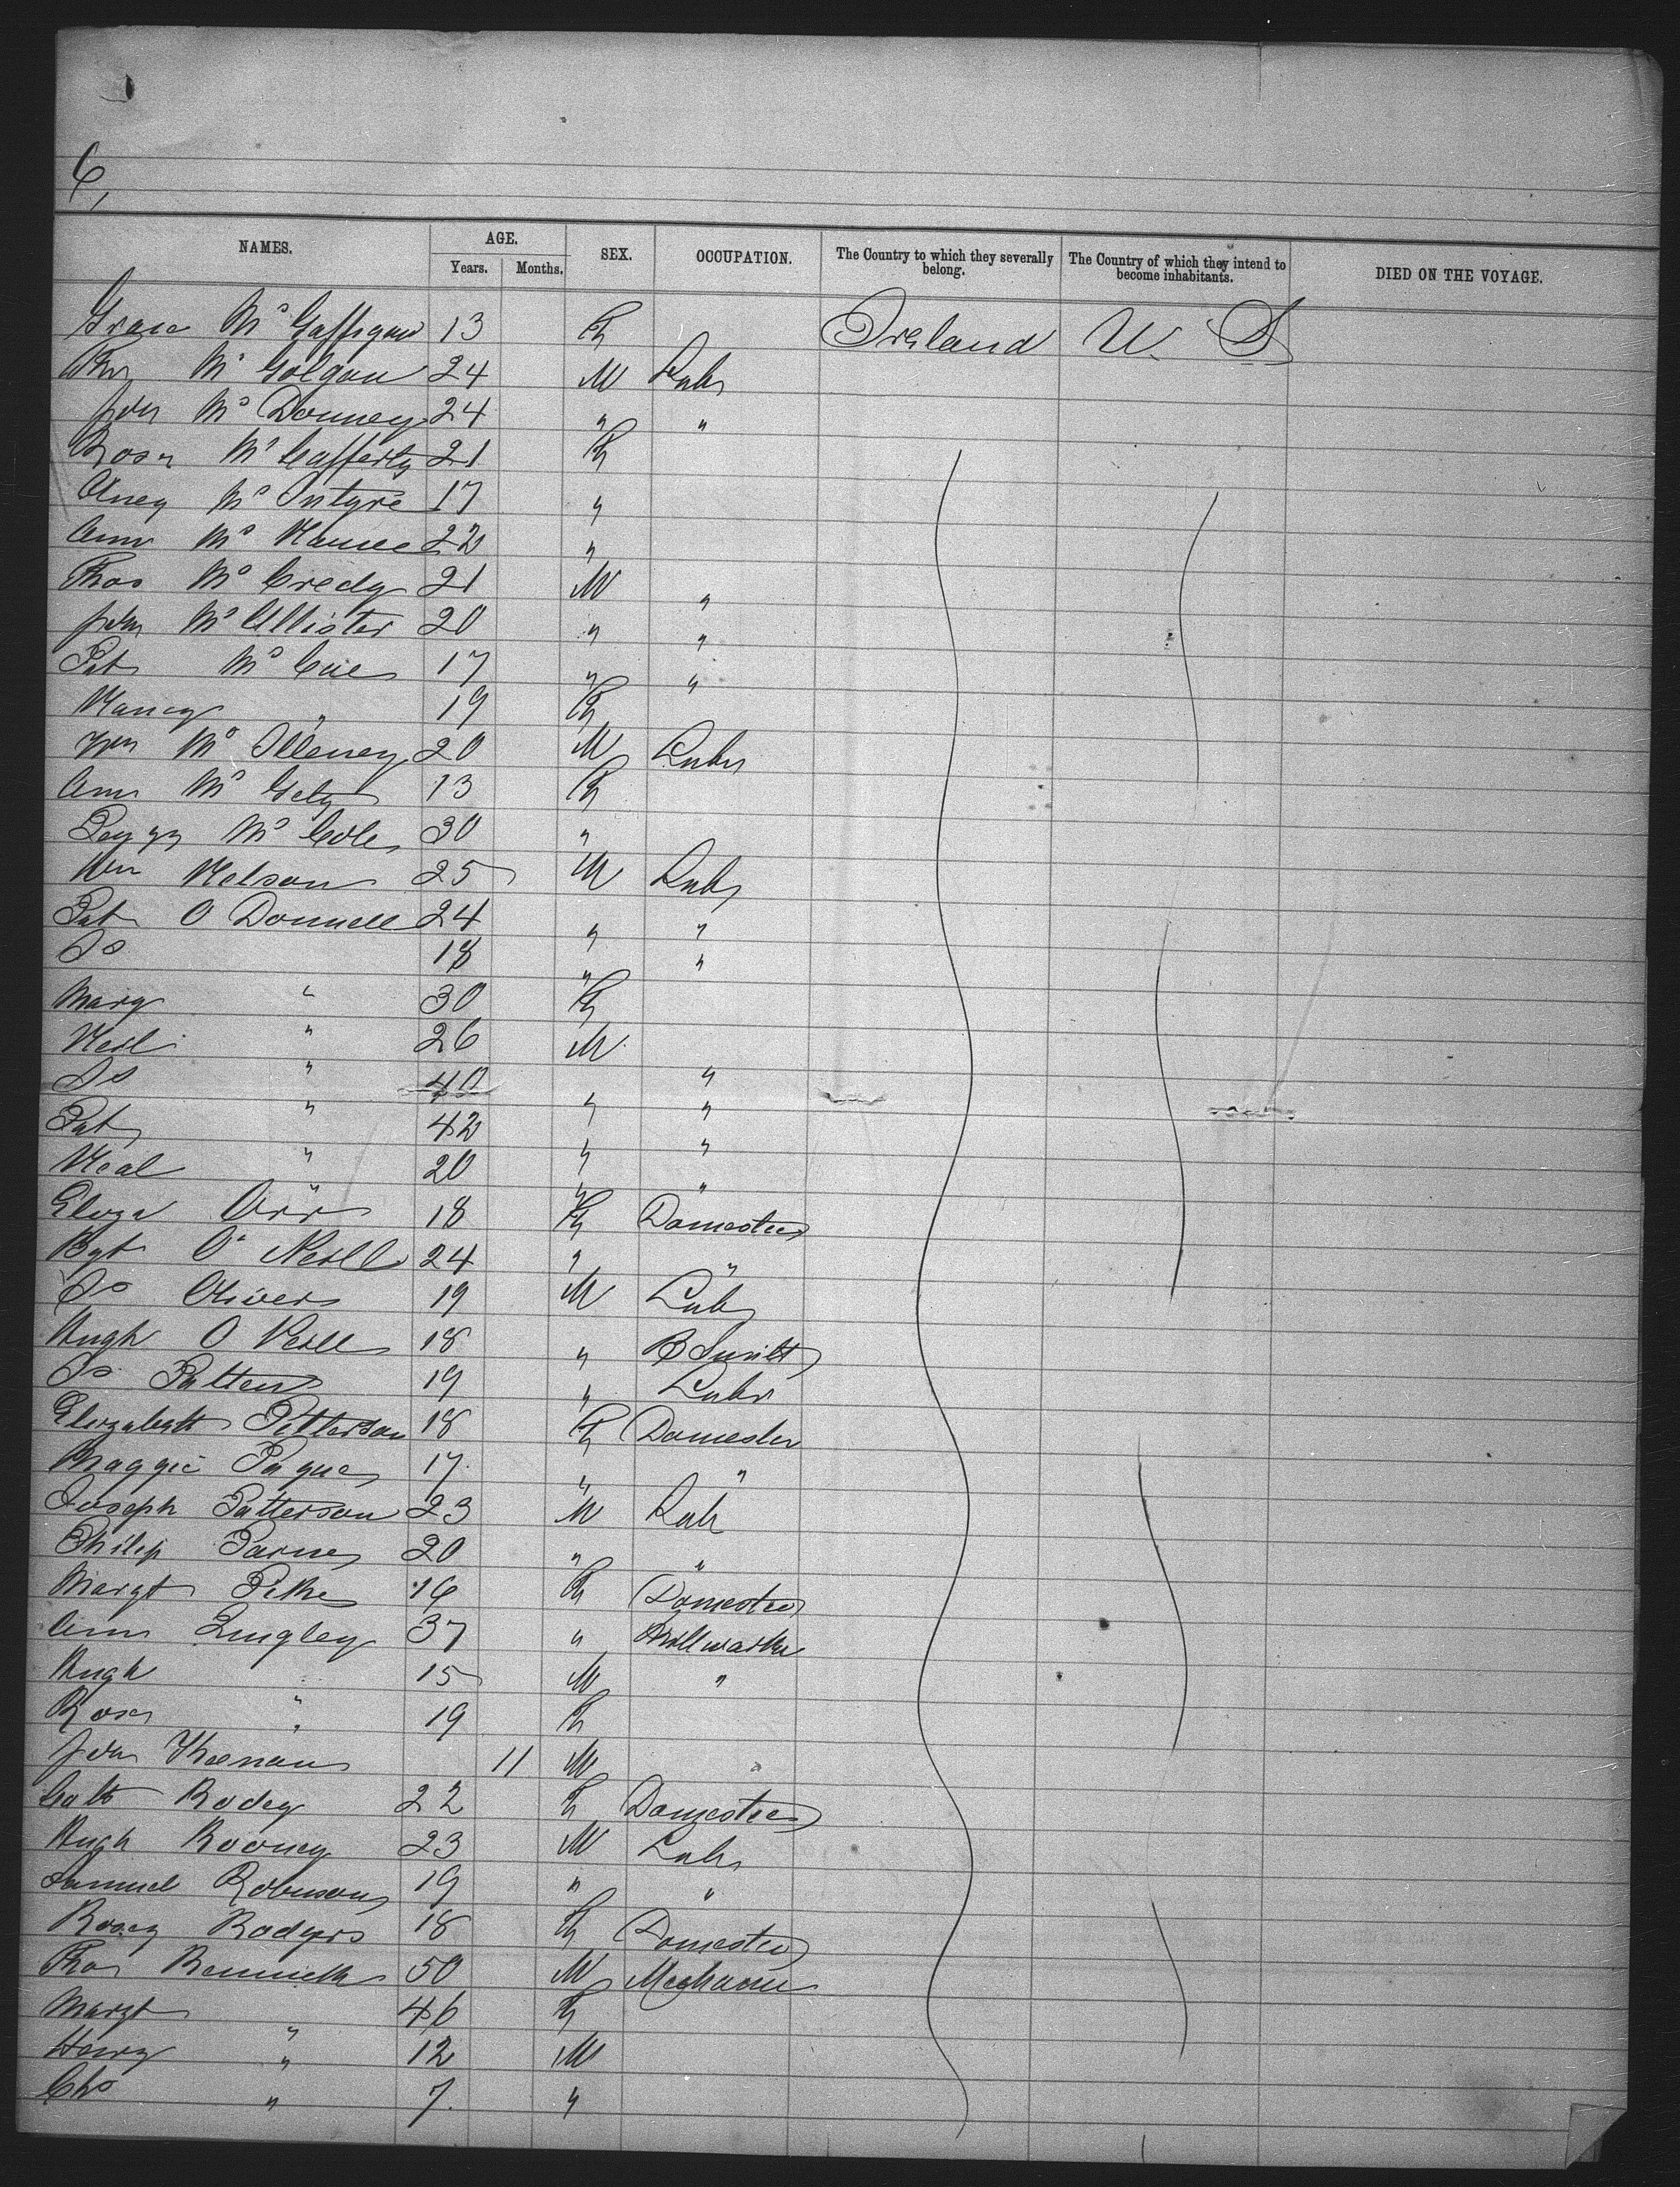 6,
NAMES. AGE. SEX. OCCUPATION. The Country to which they severally belong. The Country of which they intend to become inhabitants. DIED ON THE VOYAGE.
Years. Months.
Grace Mc Gaffigan 13 F Ireland U. S
Mc Golgan 24 M Labr
John Mc Downey 24 " "
Rose Mc Cafferty 21 F
Mc Intyre 17 "
Ann Mc Namee 22 "
Thos Mc Credy 21 M "
John Mc Allister 20 " "
Pat Mc Cue 17 " "
Nancy " 19 F
Wm Mc Illeney 20 M Labr
Ann Mc Gety 13 F
Peggy Mc Cole 30 "
Wm Nelson 25 M Labr
Pat O Donnell 24 " "
Jo " 18 " "
Mary " 30 F
Neil " 26 M "
Jo " 40 " "
Pat " 42 " "
Neal " 20 " "
Eliza Orr 18 F Domestic
Bgt O'Neill 24 " "
Jo Olivers 19 M Labr
Hugh O Neill 18 " B Smith
Jo Patten 19 " Labr
Elizabeth Petterson 18 F Domestic
Maggie Payne 17 " "
Joseph Patterson 23 M Labr
Philip 20 " "
Margt 16 F Domestic
Ann Quigley 37 " Millworker
Hugh " 15 M "
Rose " 19 F
John Keenan 11 M
Cath Rodey 22 F Domestic
Hugh Rooney 23 M Labr
Samuel Robinson 19 " "
Rosey Rodgers 18 F Domestic
Thos 50 M Mechanic
Margt " 46 F
Henry " 12 M
Chs " 7 "